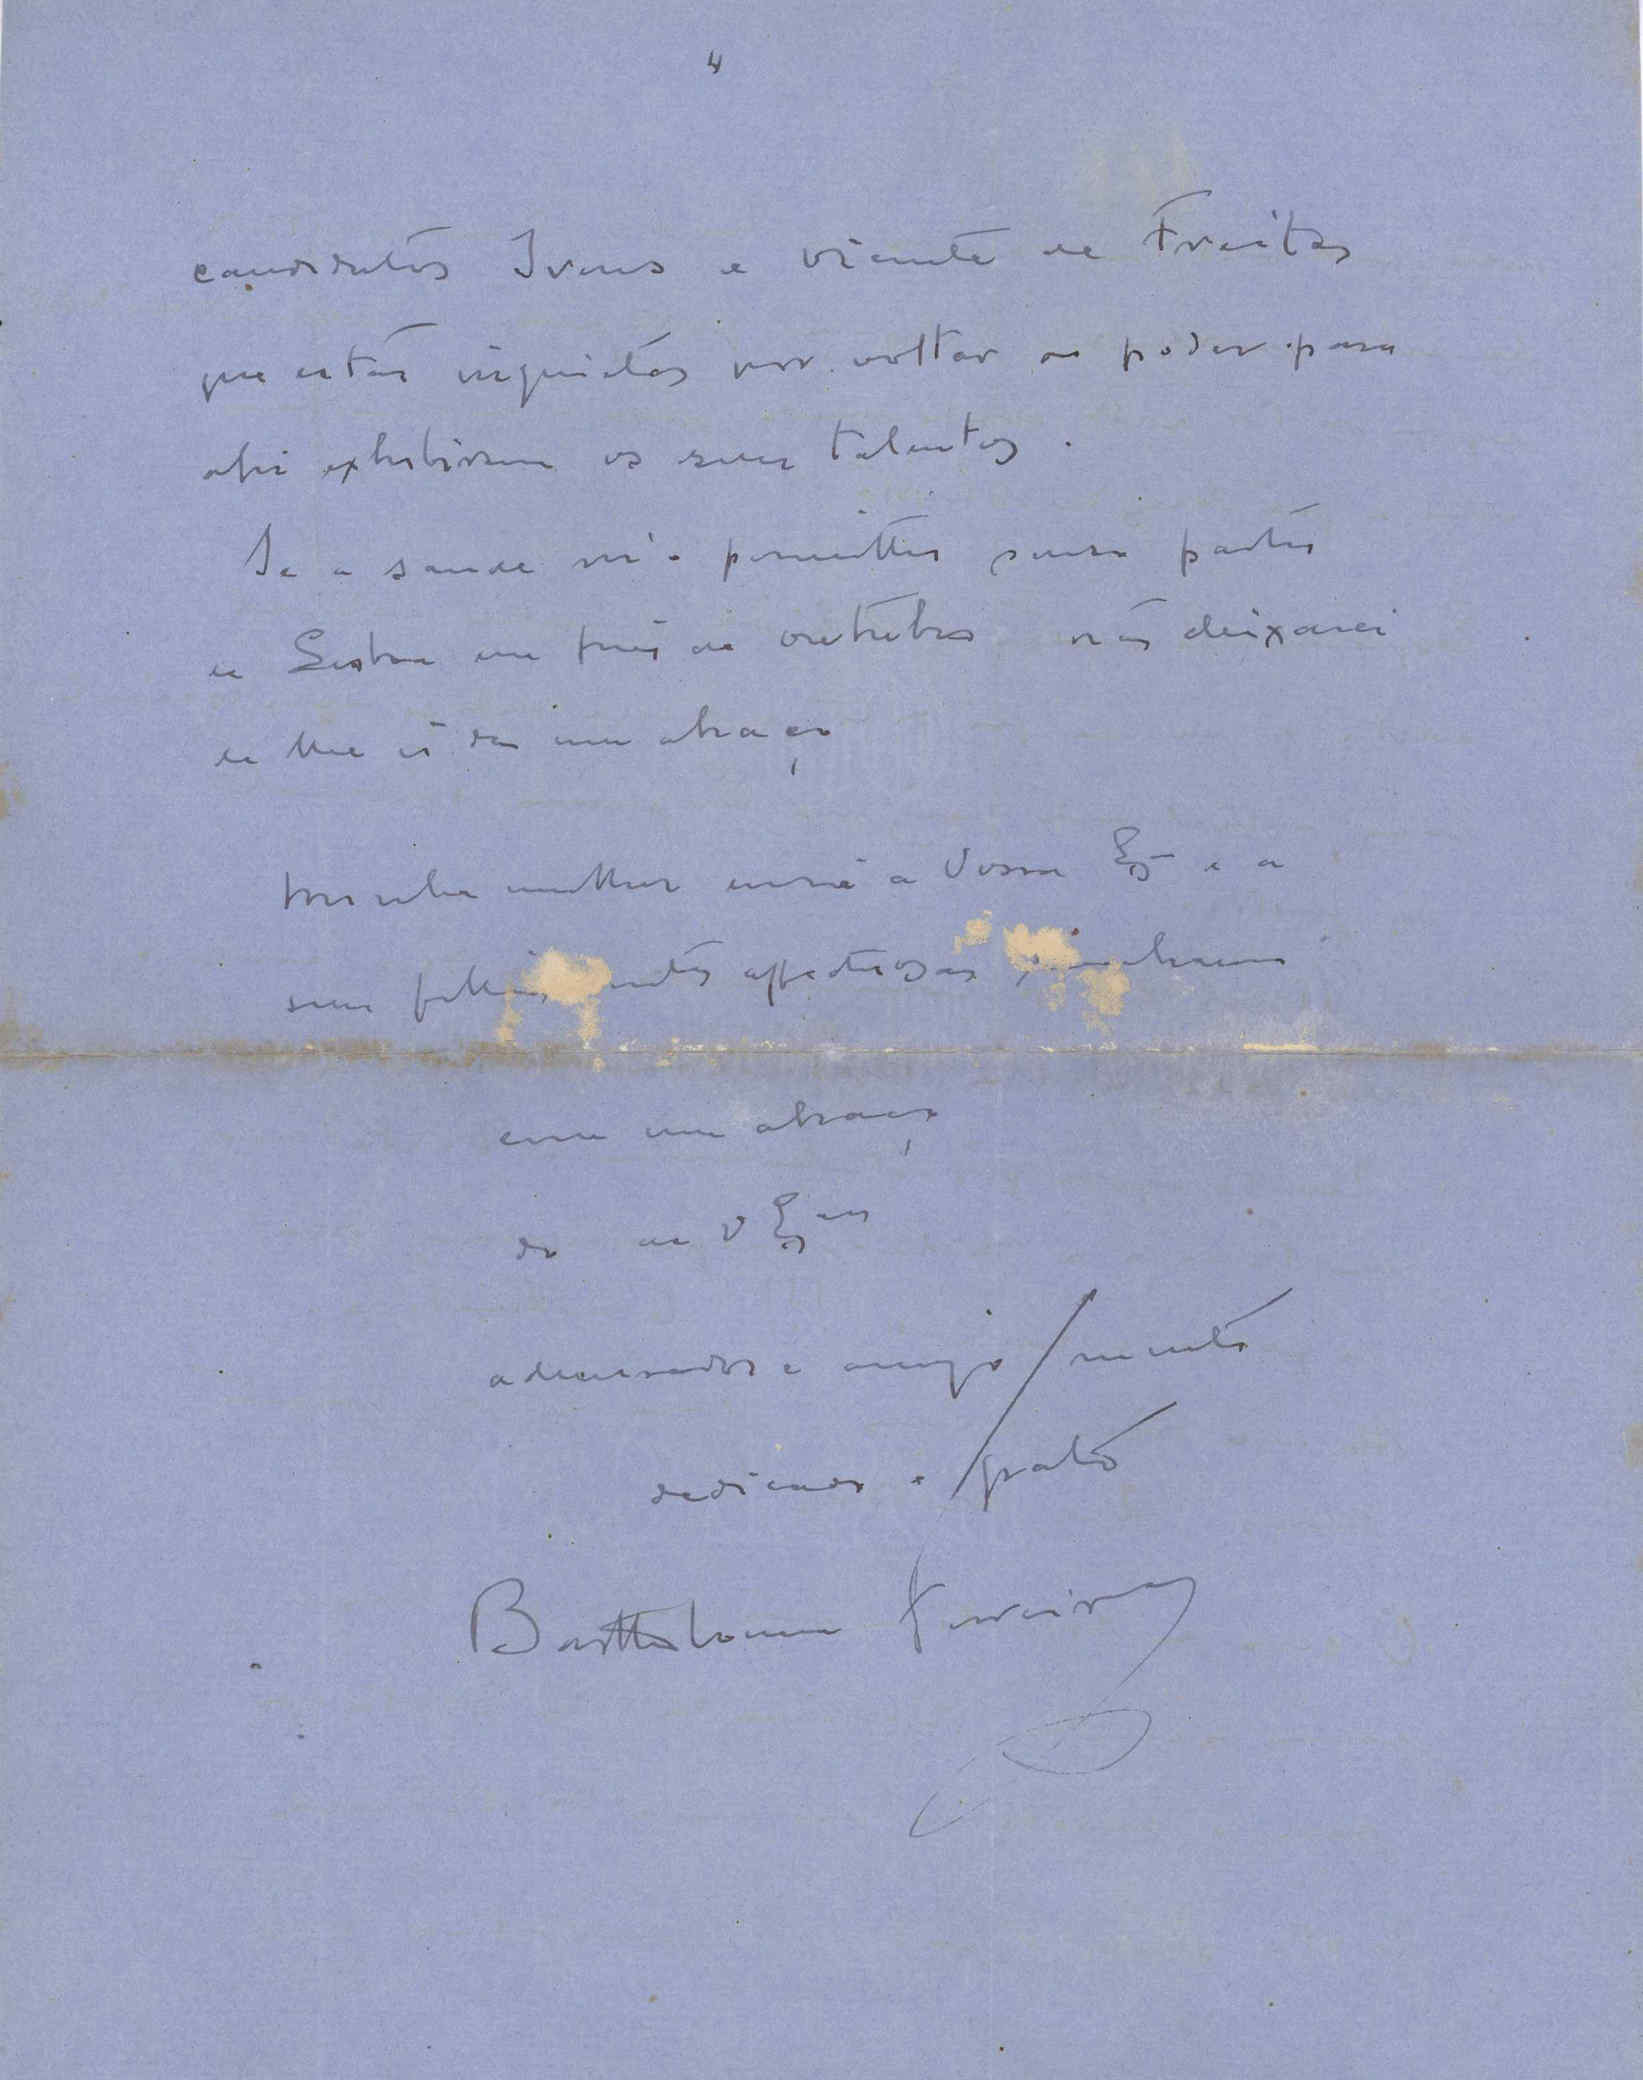 4
candidatos Ivens e Vicente de Freitas
que estão inquietos por voltar ao poder para
ahi exhibirem os seus talentos.
Se a saude m'o permittir penso partir
de Lisboa em fins de outubro não deixarei
de lhe ir dar um abraço
Minha mulher envia a Vossa Exª e a
seus filhos affectuosas
com um abraço
do de V Exas
admirador e amigo muito
dedicado e grato
Bartholomeu Ferreira